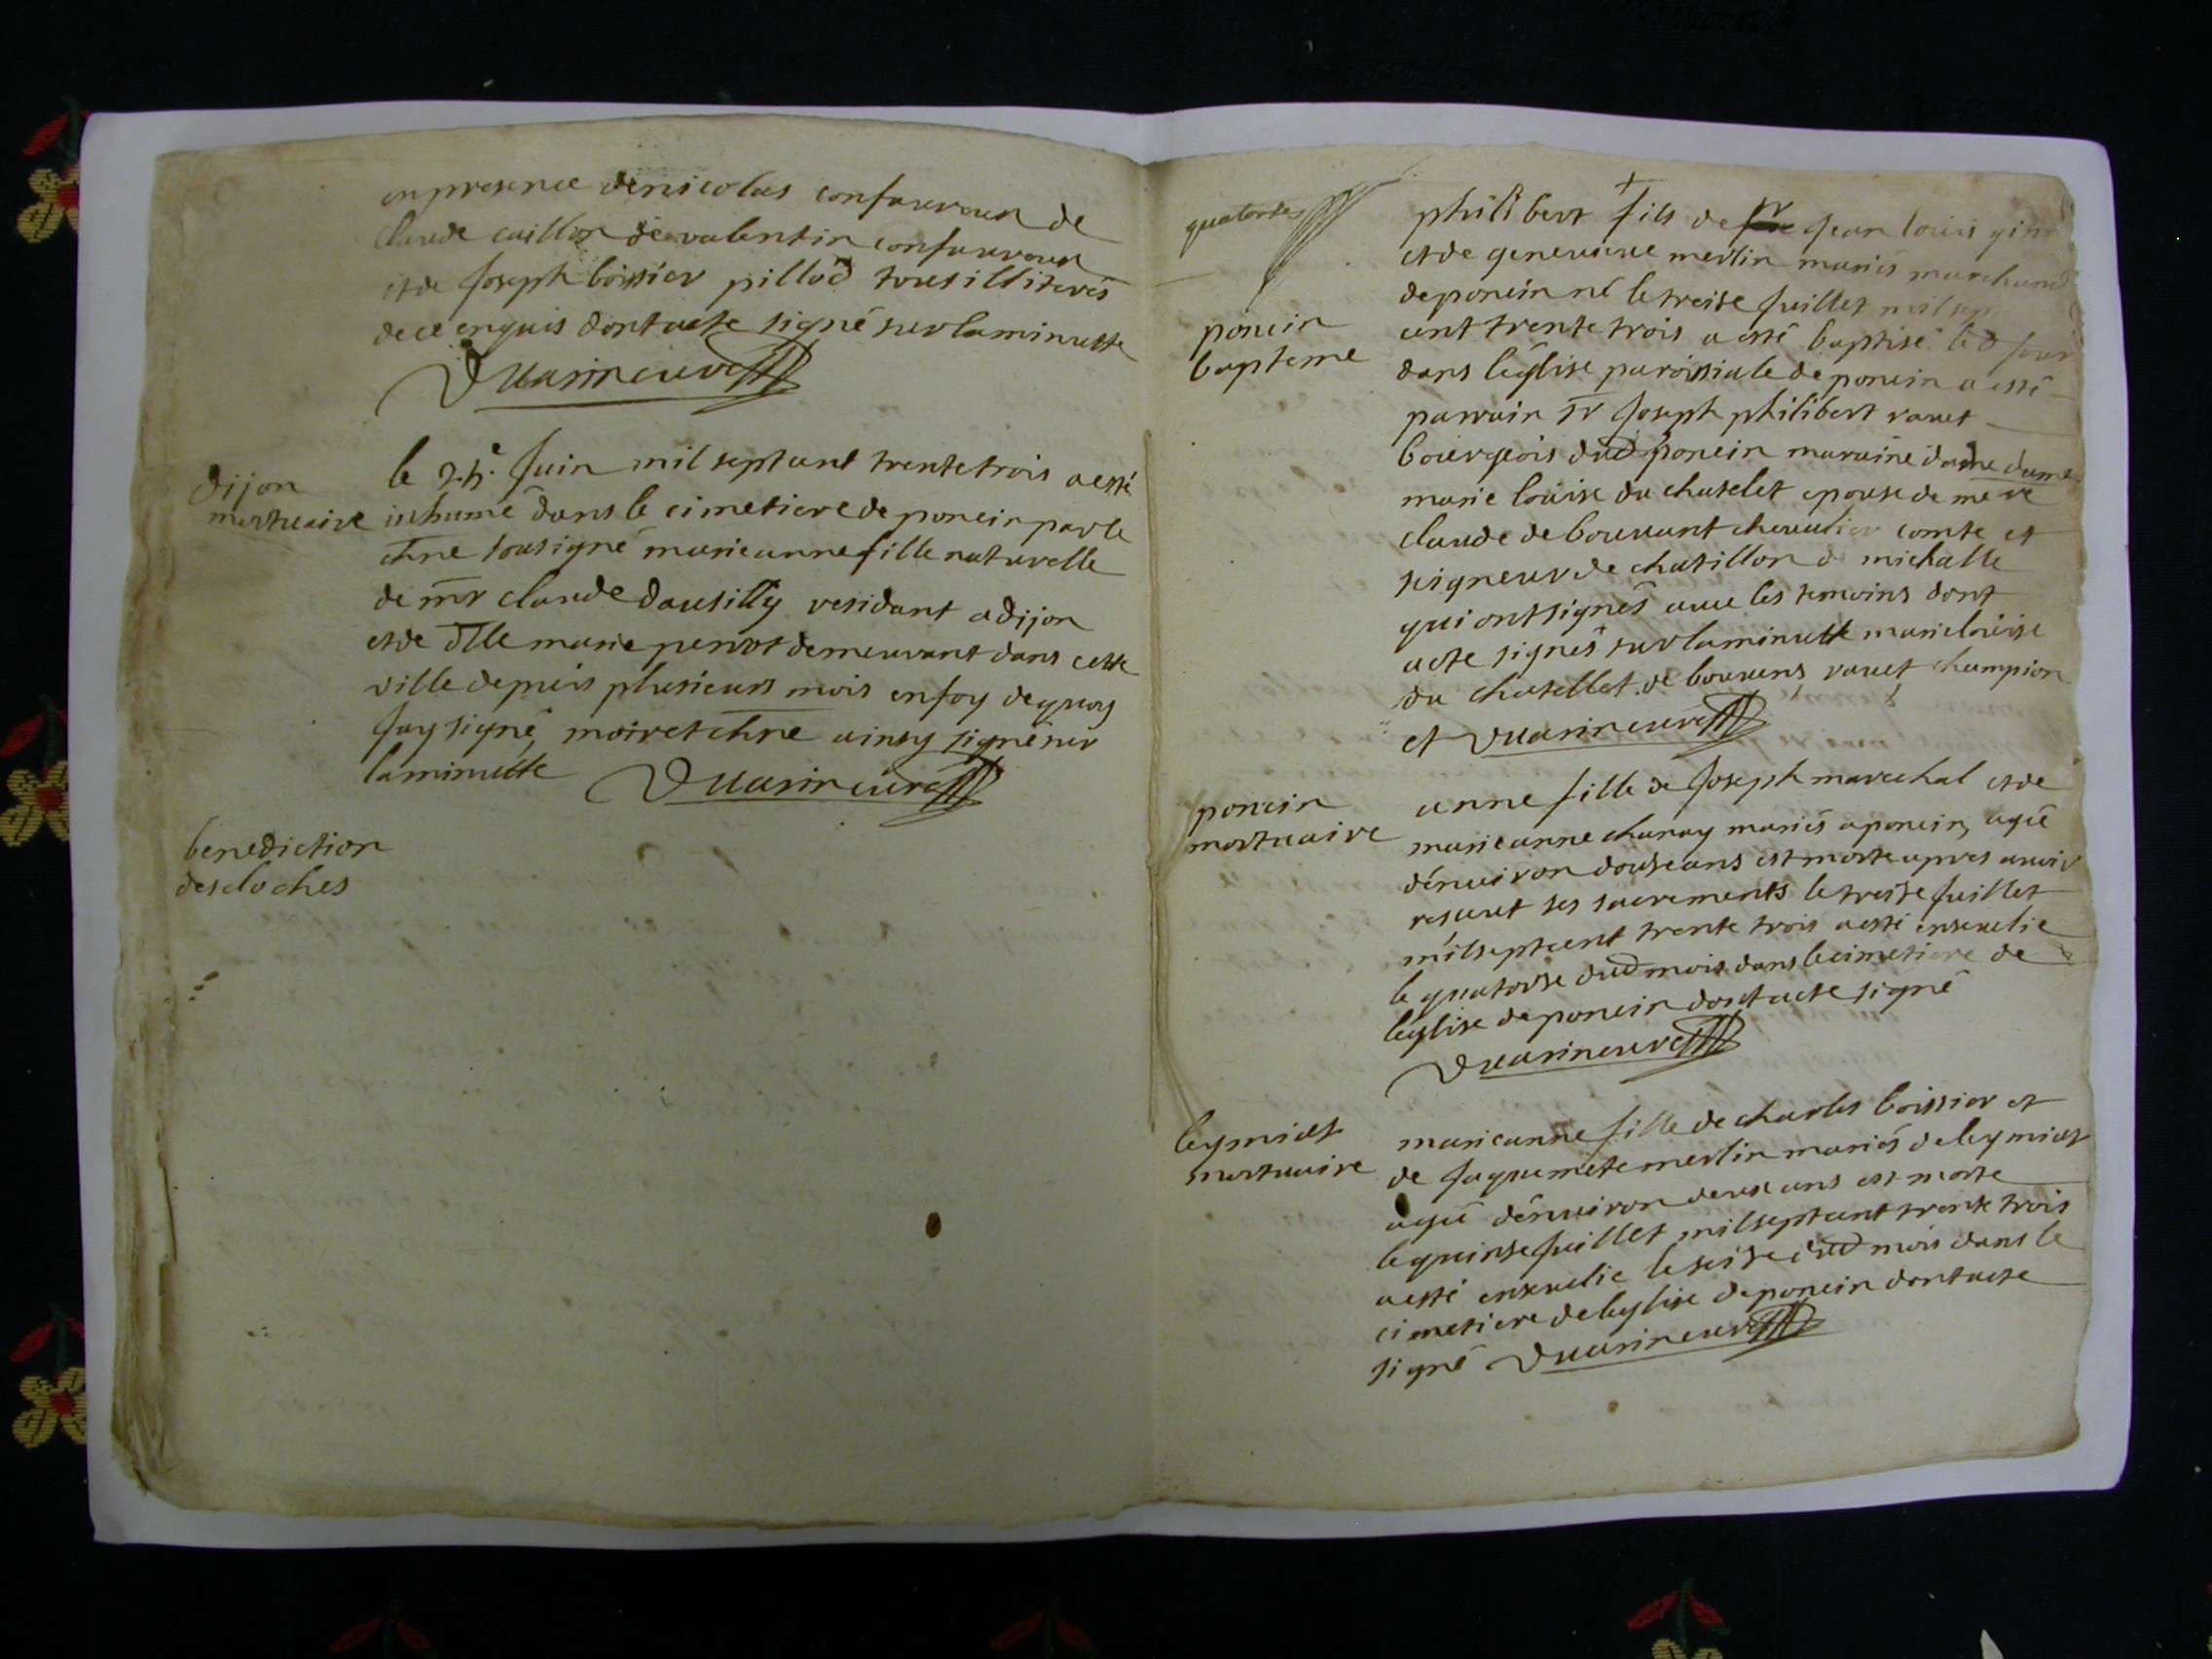 en presence de nicolas confavreux de
claude caillon de valentin confavreux
et de joseph boissier pillod tous illiterés
de ce enquis dont acte signé sur la minutte
Duarin curé
dijon
mortuaire
le 25e. juin mil sept cent trente trois a esté
inhumé dans le cimetiere de poncin par le
chne sousigné marieanne fille naturelle
de mr claude dausilly residant a dijon
et de dlle marie perrot demeurant dans cette
ville depuis plusieurs mois en foy de quoy
jay signé moiret chne ainsy signé sur
la minutte Duarin curé
benediction
des cloches
quatorze
poncin
bapteme
philibert fils de sr jean louis
et de genevieve merlin mariés marchand
de poncin né le treize juillet mil sep
cent trente trois a esté baptisé led jour
dans léglise paroissiale de poncin a esté
parrain sr joseph philibert ravet
bourgeois dud poncin maraine dame dame
marie loüise du chatelet epouse de me re
claude de bouvant chevalier comte et
seigneur de chatillon de michalle
qui ont signés avec les temoins dont
acte signés sur la minutte marie loüise
du chatellet de bouvens ravet champion
et Duarin curé
poncin
mortuaire
anne fille de joseph marechal et de
marieanne chanay mariés a poncin, agée
dénuiron douse ans est morte apres avoir
resceut ses sacrements le treize juillet
mil sept cent trente trois a esté ensevelie
le quatorse dud mois dans le cimetiere de
léglise de poncin dont acte signé
Duarin curé
leymiat
mortuaire
marieanne fille de charles boissier et
de jaquemete merlin mariés de leymiat
agée dénuiron deux ans est morte
le quinse juillet mil sept cent trente trois
a esté ensevelie le seize dud mois dans le
cimetiere de leglise de poncin dont acte
signé Duarin curé